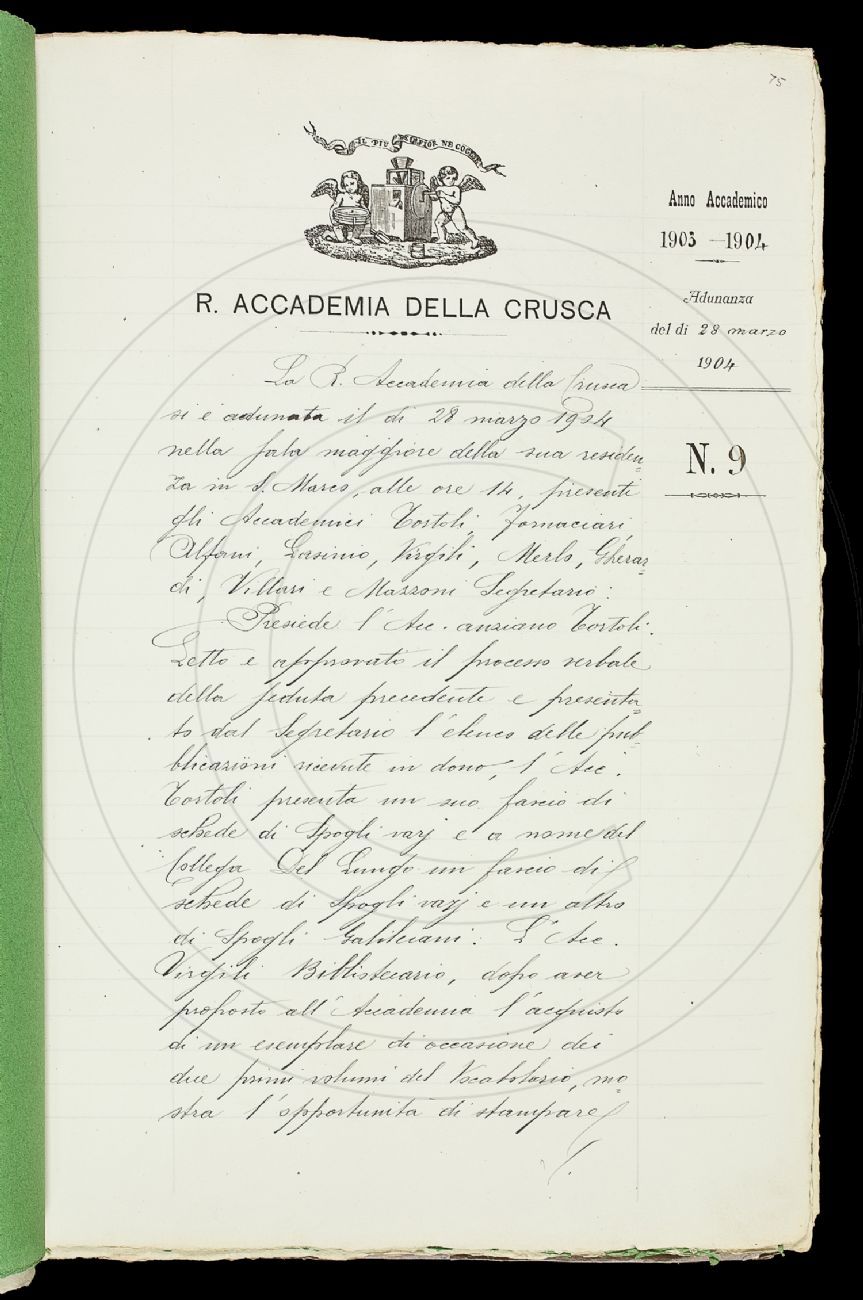 75
IL PIÙ BEL FIOR NE COGLIE
Anno Accademico
1903-1904
Adunanza
del dì 28 marzo
1904
N. 9
R. ACCADEMIA DELLA CRUSCA
La R. Accademia della Crusca
si è adunata il dì 28 marzo 1904
nella sala maggiore della sua residen=
za in S. Marco, alle ore 14, presenti
gli Accademici Tortoli, Fornaciari,
Alfani, Lasinio, Virgili, Merlo, Gherar=
di, Villari e Mazzoni Segretario.
Presiede l'Acc. anziano Tortoli.
Letto e approvato il processo verbale
della seduta precedente e presenta=
to dal Segretario l'elenco delle pub=
blicazioni ricevute in dono, l'Acc.
Tortoli presenta un suo fascio di
schede di Spogli varj e a nome del
Collega Del Lungo un fascio di
schede di Spogli varj e un altro
di Spogli Galileiani. L'Acc.
Virgili Bibliotecario, dopo aver
proposto all'Accademia l'acquisto
di un esemplare di occasione dei
due primi volumi del Vocabolario, mo=
stra l'opportunità di stampare